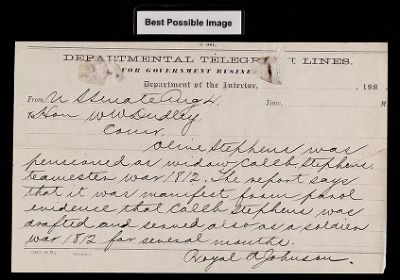 Best Possible Image
DEPARTMENTAL TELEGRAPH LINES,
FOR GOVERNMENT BUSINESS
Department of the Interior,
188
From U S Senate Aug 4. Time, M
To Hon W W Dudley
Comr.
Olive Stephens was
pensioned as widow Caleb Stephens.
teamester war 1812. The report says
that it was manifest from parol
evidence that Caleb Stephens was
drafted and served also as a soldier
war 1812 for several months.
Royal A Johnson.